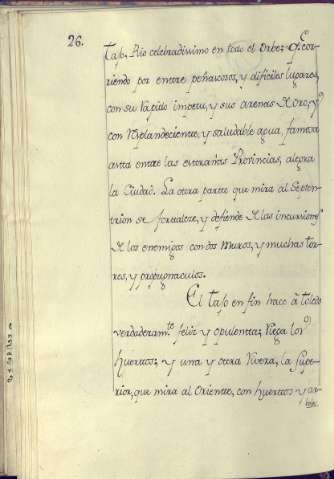 26.
Tajo, Rio celebradissimo en todo el Orbe: Cor-
riendo por entre peñascosos, y dificiles lugares,
con su rapido impetu, y sus arenas de oro, y
con resplandeciente, y saludable agua, famosa
aun entre las extrañas Provincias, alegra
la Ciudad. La otra parte que mira al Septen-
trion se fortalece, y defiende de las incursiones
de los enemigos con dos Muros, y muchas tor-
res, y propugnaculos.
El Tajo en fin hace à Toledo
verdaderamte feliz y opulenta; riega los
huertos; y una y otra rivera, la supe-
rior, que mira al Oriente, con huertos y ar-